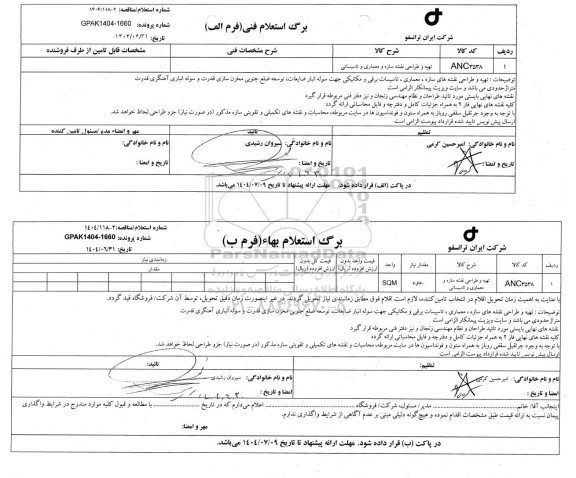 شماره استعلام/مناقصه: ۱۴۰۴/۱۱۸-۰۲
برگ استعلام فنی(فرم الف)
شماره پرونده: GPAK1404-1660
تاریخ: ۱۴۰۴/۰۶/۳۱
شرکت ایران ترانسفو
ردیف کد کالا شرح کالا مشخصات فنی مشخصات قابل تامین از طرف فروشنده
۱ ANC۳۵۳۸ تهیه و طراحی نقشه سازه و معماری و تاسیساتی
توضیحات : تهیه و طراحی نقشه های سازه ، معماری ، تاسیسات برقی و مکانیکی جهت سوله انبار ضایعات، توسعه ضلع جنوبی مخزن سازی قدرت و سوله انباری آهنگری قدرت
متراژحدودی می باشد و سایت ویزیت پیمانکار الزامی است
نقشه های نهایی بایستی مورد تائید طراحان و نظام مهندسی زنجان و نیز دفتر فنی مربوطه قرار گیرد
کلیه نقشه های نهایی فاز ۲ به همراه جزئیات کامل و دفترچه و فایل محاسباتی ارائه گردد
با توجه به وجود جرثقیل سقفی روباز به همراه ستون و فونداسیون ها در سایت مربوطه، محاسبات و نقشه های تکمیلی و تقویتی سازه مذکور (در صورت نیاز) جزو طراحی لحاظ خواهد شد.
ارسال پیش نویس تایید شده قرارداد پیوست الزامی است
تنظیم تائید مهر و امضاء مدیر/مسئول تامین کننده
نام و نام خانوادگی: امیرحسین کرمی نام و نام خانوادگی: سیروان رشیدی نام و نام خانوادگی:
تاریخ و امضا : تاریخ و امضا : تاریخ و امضا :
در پاکت (الف) قرار داده شود. مهلت ارائه پیشنهاد تا تاریخ ۱۴۰۴/۰۷/۰۹ می‌باشد.
شماره استعلام/مناقصه: ۱۴۰۴/۱۱۸-۰۲
برگ استعلام بهاء(فرم ب)
شماره پرونده: GPAK1404-1660
تاریخ: ۱۴۰۴/۰۶/۳۱
شرکت ایران ترانسفو
ردیف کد کالا شرح کالا مقدار نیاز واحد قیمت واحد بدون ارزش افزوده (ریال) قیمت کل بدون ارزش افزوده (ریال) زمانبندی نیاز
مقدار
۱ ANC۳۵۳۸ تهیه و طراحی نقشه سازه و معماری و تاسیساتی SQM
ParsNamadData
با عنایت به اهمیت زمان تحویل اقلام در انتخاب تامین کننده، لازم است اقلام فوق مطابق زمانبندی نیاز تحویل گردند. در غیر اینصورت زمان دقیق تحویل، توسط آن شرکت/ فروشگاه قید گردد.
تهیه و طراحی نقشه های سازه ، معماری ، تاسیسات برقی و مکانیکی جهت سوله انبار ضایعات، توسعه ضلع جنوبی مخزن سازی قدرت و سوله انباری آهنگری قدرت
متراژحدودی می باشد و سایت ویزیت پیمانکار الزامی است
نقشه های نهایی بایستی مورد تائید طراحان و نظام مهندسی زنجان و نیز دفتر فنی مربوطه قرار گیرد
کلیه نقشه های نهایی فاز ۲ به همراه جزئیات کامل و دفترچه و فایل محاسباتی ارائه گردد
با توجه به وجود جرثقیل سقفی روباز به همراه ستون و فونداسیون ها در سایت مربوطه، محاسبات و نقشه های تکمیلی و تقویتی سازه مذکور (در صورت نیاز) جزو طراحی لحاظ خواهد شد.
ارسال پیش نویس تایید شده قرارداد پیوست الزامی است
تنظیم: تائید:
نام و نام خانوادگی: امیرحسین کرمی نام و نام خانوادگی: سیروان رشیدی
تاریخ و امضاء: تاریخ و امضاء:
اینجانب آقا/ خانم مدیر/ مسئول، شرکت/ فروشگاه اعلام می‌دارم که در تاریخ با مطالعه و قبول کلیه موارد مندرج در شرایط واگذاری
پیمان نسبت به ارائه قیمت طبق مشخصات اقدام نموده و هیچگونه دلیلی مبنی بر عدم آگاهی از شرایط واگذاری ندارم.
مهر و امضاء:
در پاکت (ب) قرار داده شود. مهلت ارائه پیشنهاد تا تاریخ ۱۴۰۴/۰۷/۰۹ می‌باشد.